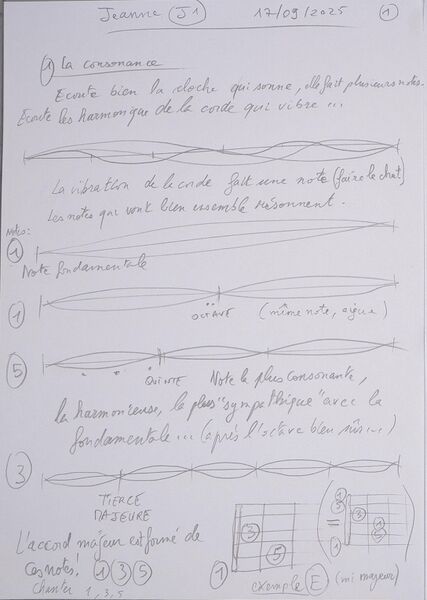 Jeanne (J1) 17/09/2025 1
1 La consonance
Ecoute bien la cloche qui sonne, elle fait plusieurs notes.
Ecoute les harmonique de la corde qui vibre ...
La vibration de la corde fait une note (faire le chat)
Les notes qui vont bien ensemble résonnent.
Notes:
1
Note fondamentale
1
OCTAVE (même note, aigue)
5
QUINTE Note la plus consonante,
la harmonieuse, la plus "sympathique" avec la
fondamentale ... (après l'octave bien sûr ...)
3
TIERCE
MAJEURE
L'accord majeur est formé de
ces notes! 1 3 5
chanter 1, 3, 5
1 3 5
exemple E (mi majeur)
1 3 5 = 1 3 1